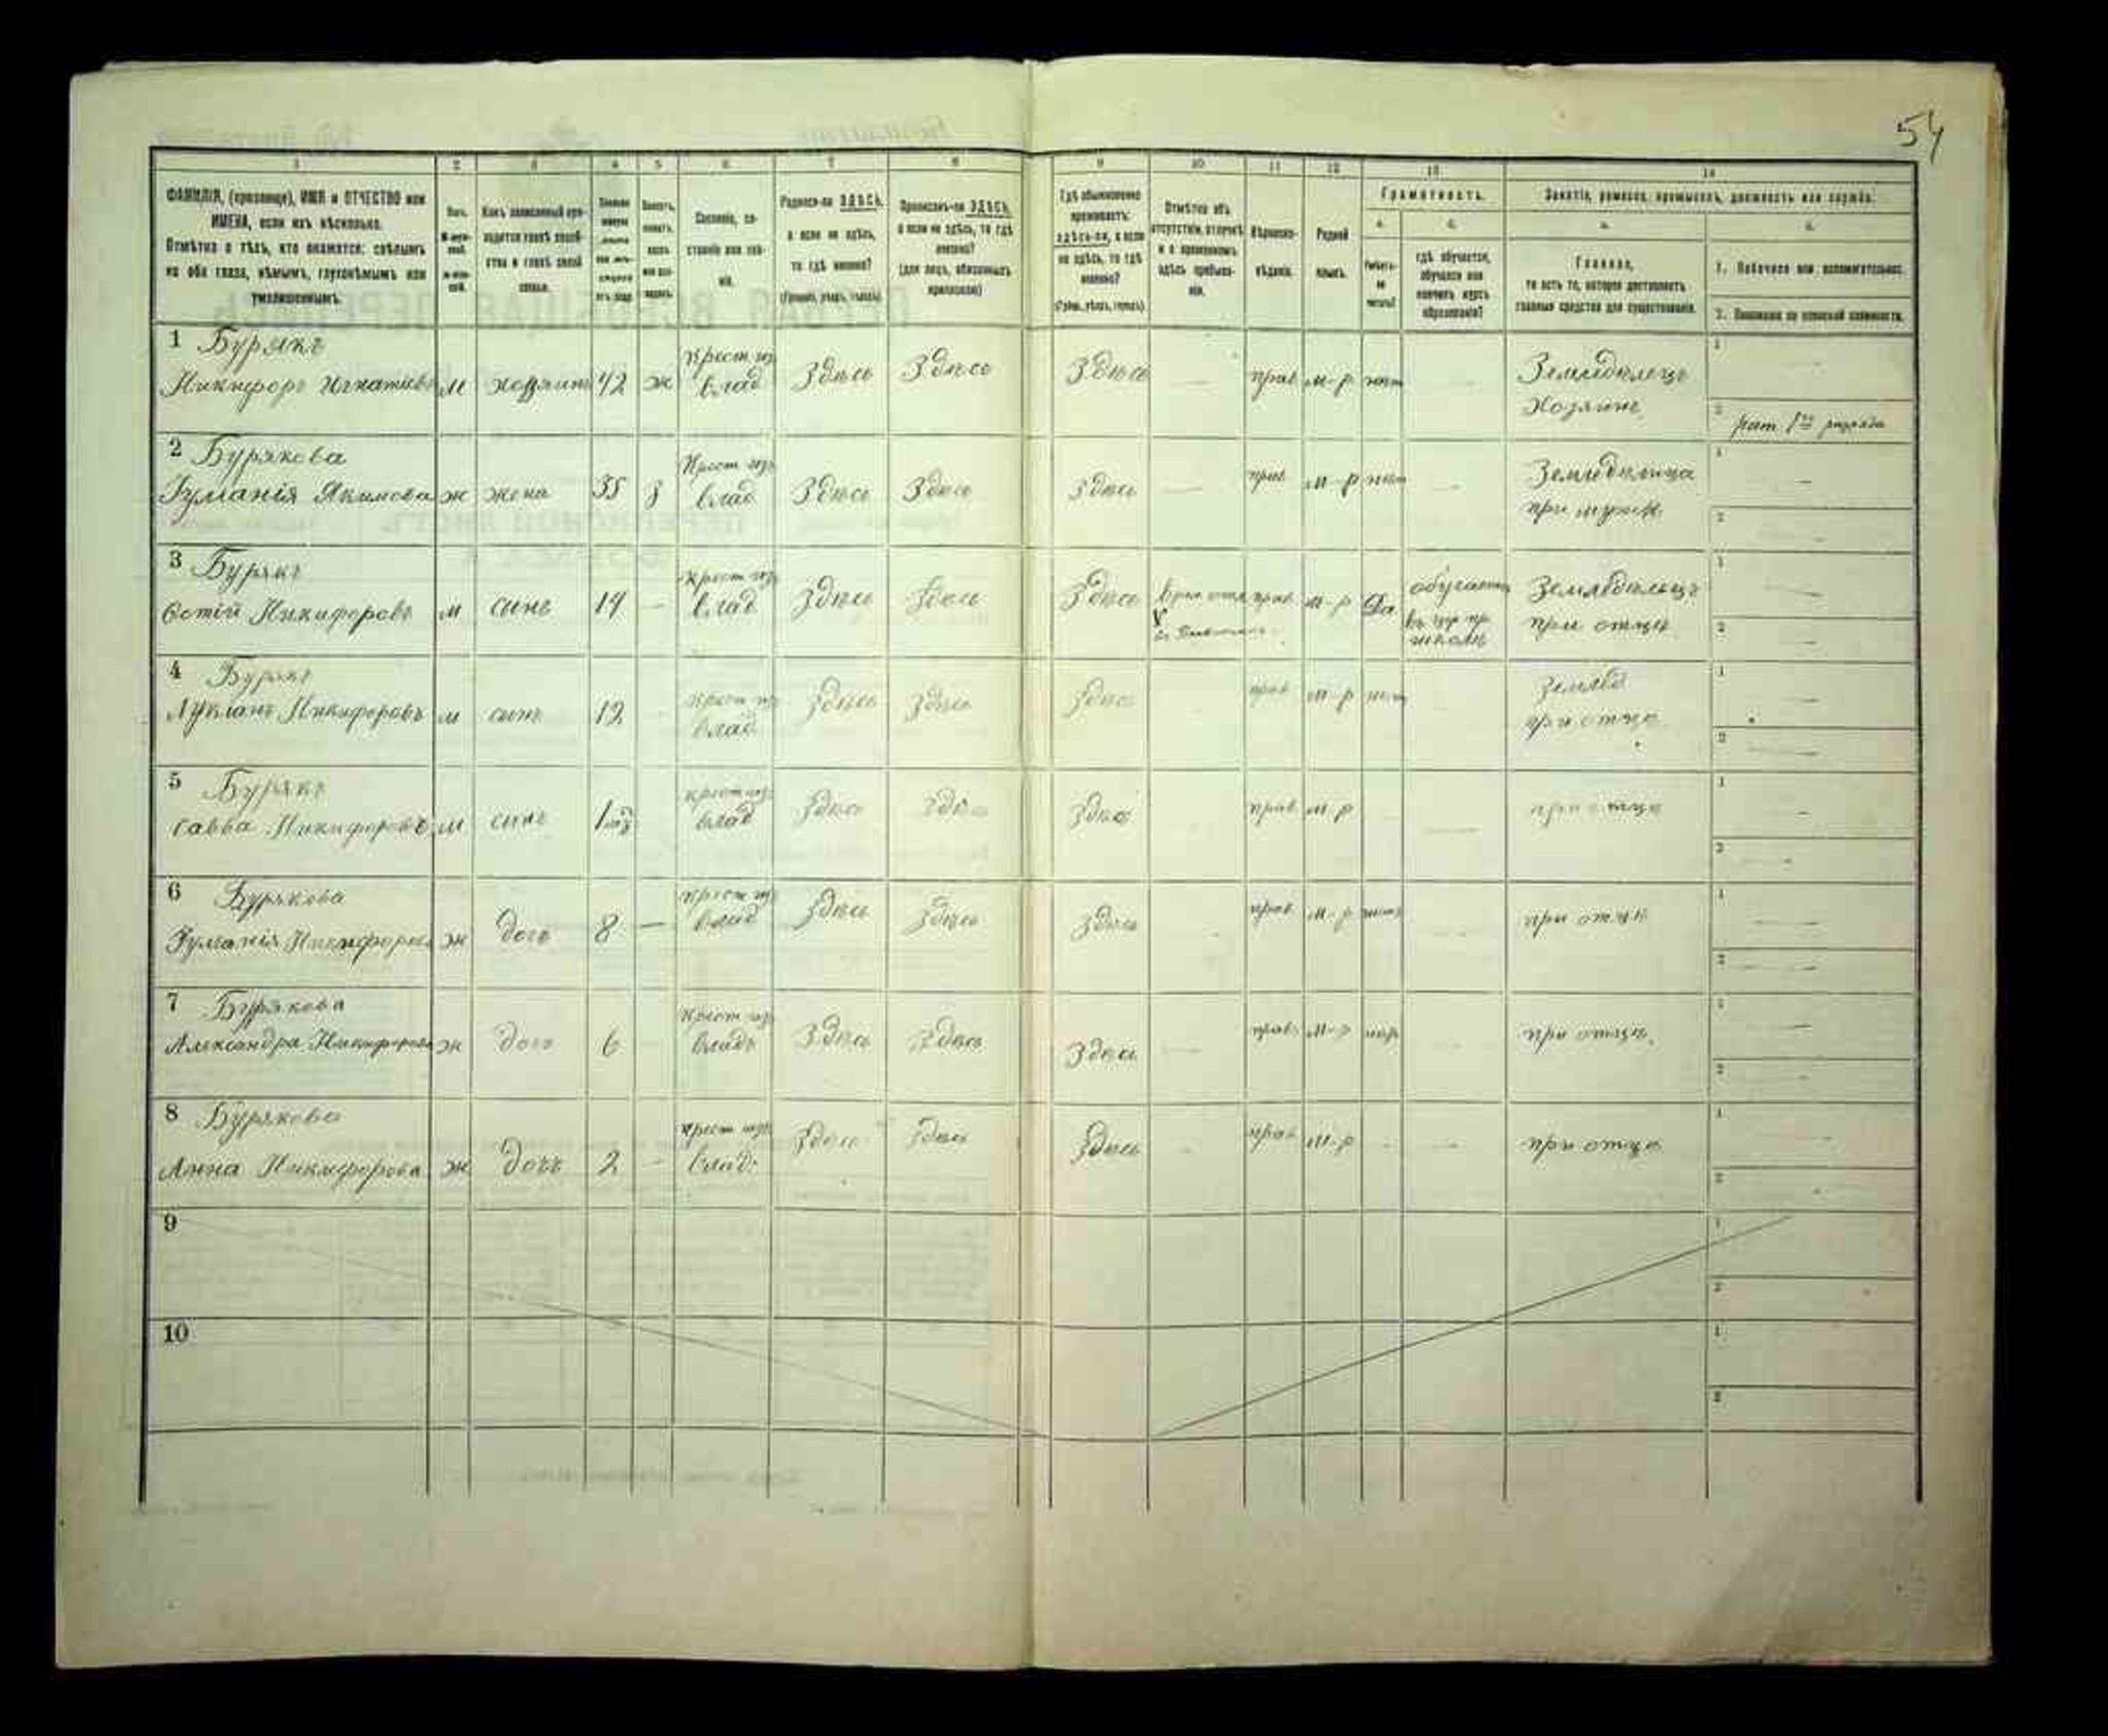 54
1 2 3 4 5 6 7 8 9 10 11 12 13 14
ФАМИЛІЯ, (прозвище), ИМЯ и ОТЧЕСТВО или
ИМЕНА, если ихъ нѣсколько.
Отмѣтка о тѣхъ, кто окажется: слѣпымъ
на оба глаза, нѣмымъ, глухонѣмымъ или
умалишеннымъ.
Сословіе, со-
стояніе или зва-
ніе.
Родился-ли ЗДѢСЬ,
а если не здѣсь,
то гдѣ именно?
(Губернія, уѣздъ, городъ)
Приписанъ-ли ЗДѢСЬ,
а если не здѣсь, то гдѣ
именно?
(для лицъ, обязанныхъ
припискою)
Гдѣ обыкновенно
проживаетъ:
здѣсь-ли, а если
не здѣсь, то гдѣ
именно?
(Губ., уѣздъ, городъ)
Отмѣтка объ
отсутствіи, отлучкѣ
и о временномъ
здѣсь пребыва-
ніи.
Вѣроиспо-
вѣданіе.
Родной
языкъ.
Грамотность.
а.
Умѣетъ-
ли
читать?
б.
гдѣ обучается,
обучался или
кончилъ курсъ
образованія?
Занятіе, ремесло, промыселъ, должность или служба.
а.
Главное,
то есть то, которое доставляетъ
главныя средства для существованія.
б.
1. Побочное или вспомогательное.
2. Положеніе по воинской повинности.
1 Бурякъ
Никифоръ Игнатьевъ м хозяинъ 42 ж Крест изъ влад Здѣсь Здѣсь Здѣсь — прав м-р нѣт — Земледѣлецъ Хозяинъ 1 — 2 рат 1го разряда
2 Бурякова
Акимова ж жена 35 з Крест изъ влад Здѣсь Здѣсь Здѣсь — прав м-р нѣт — при мужѣ 1 — 2 —
3 Бурякъ
Никифоровъ м сынъ 14 — Крест изъ влад Здѣсь Здѣсь Здѣсь прав м-р Да обучается въ школѣ Земледѣлецъ при отцѣ 1 — 2 —
4 Бурякъ
Лукіанъ Никифоровъ м сынъ 12 — Крест изъ влад Здѣсь Здѣсь Здѣсь прав м-р нѣт — Землед при отцѣ 1 — 2 —
5 Бурякъ
Савва Никифоровъ м сынъ крест изъ влад Здѣсь Здѣсь Здѣсь прав м-р — при отцѣ 1 — 2 —
6 Бурякова
Никифорова ж дочь 8 — крест изъ влад Здѣсь Здѣсь Здѣсь — прав м-р нѣтъ — при отцѣ 1 — 2 —
7 Бурякова
Александра Никифорова ж дочь 6 Крест изъ влад Здѣсь Здѣсь Здѣсь — прав м-р — при отцѣ 1 — 2 —
8 Бурякова
Анна Никифорова ж дочь 2 — крест изъ влад: Здѣсь Здѣсь Здѣсь — прав м-р — — при отцѣ 1 — 2 —
9 1
2
10 1
2